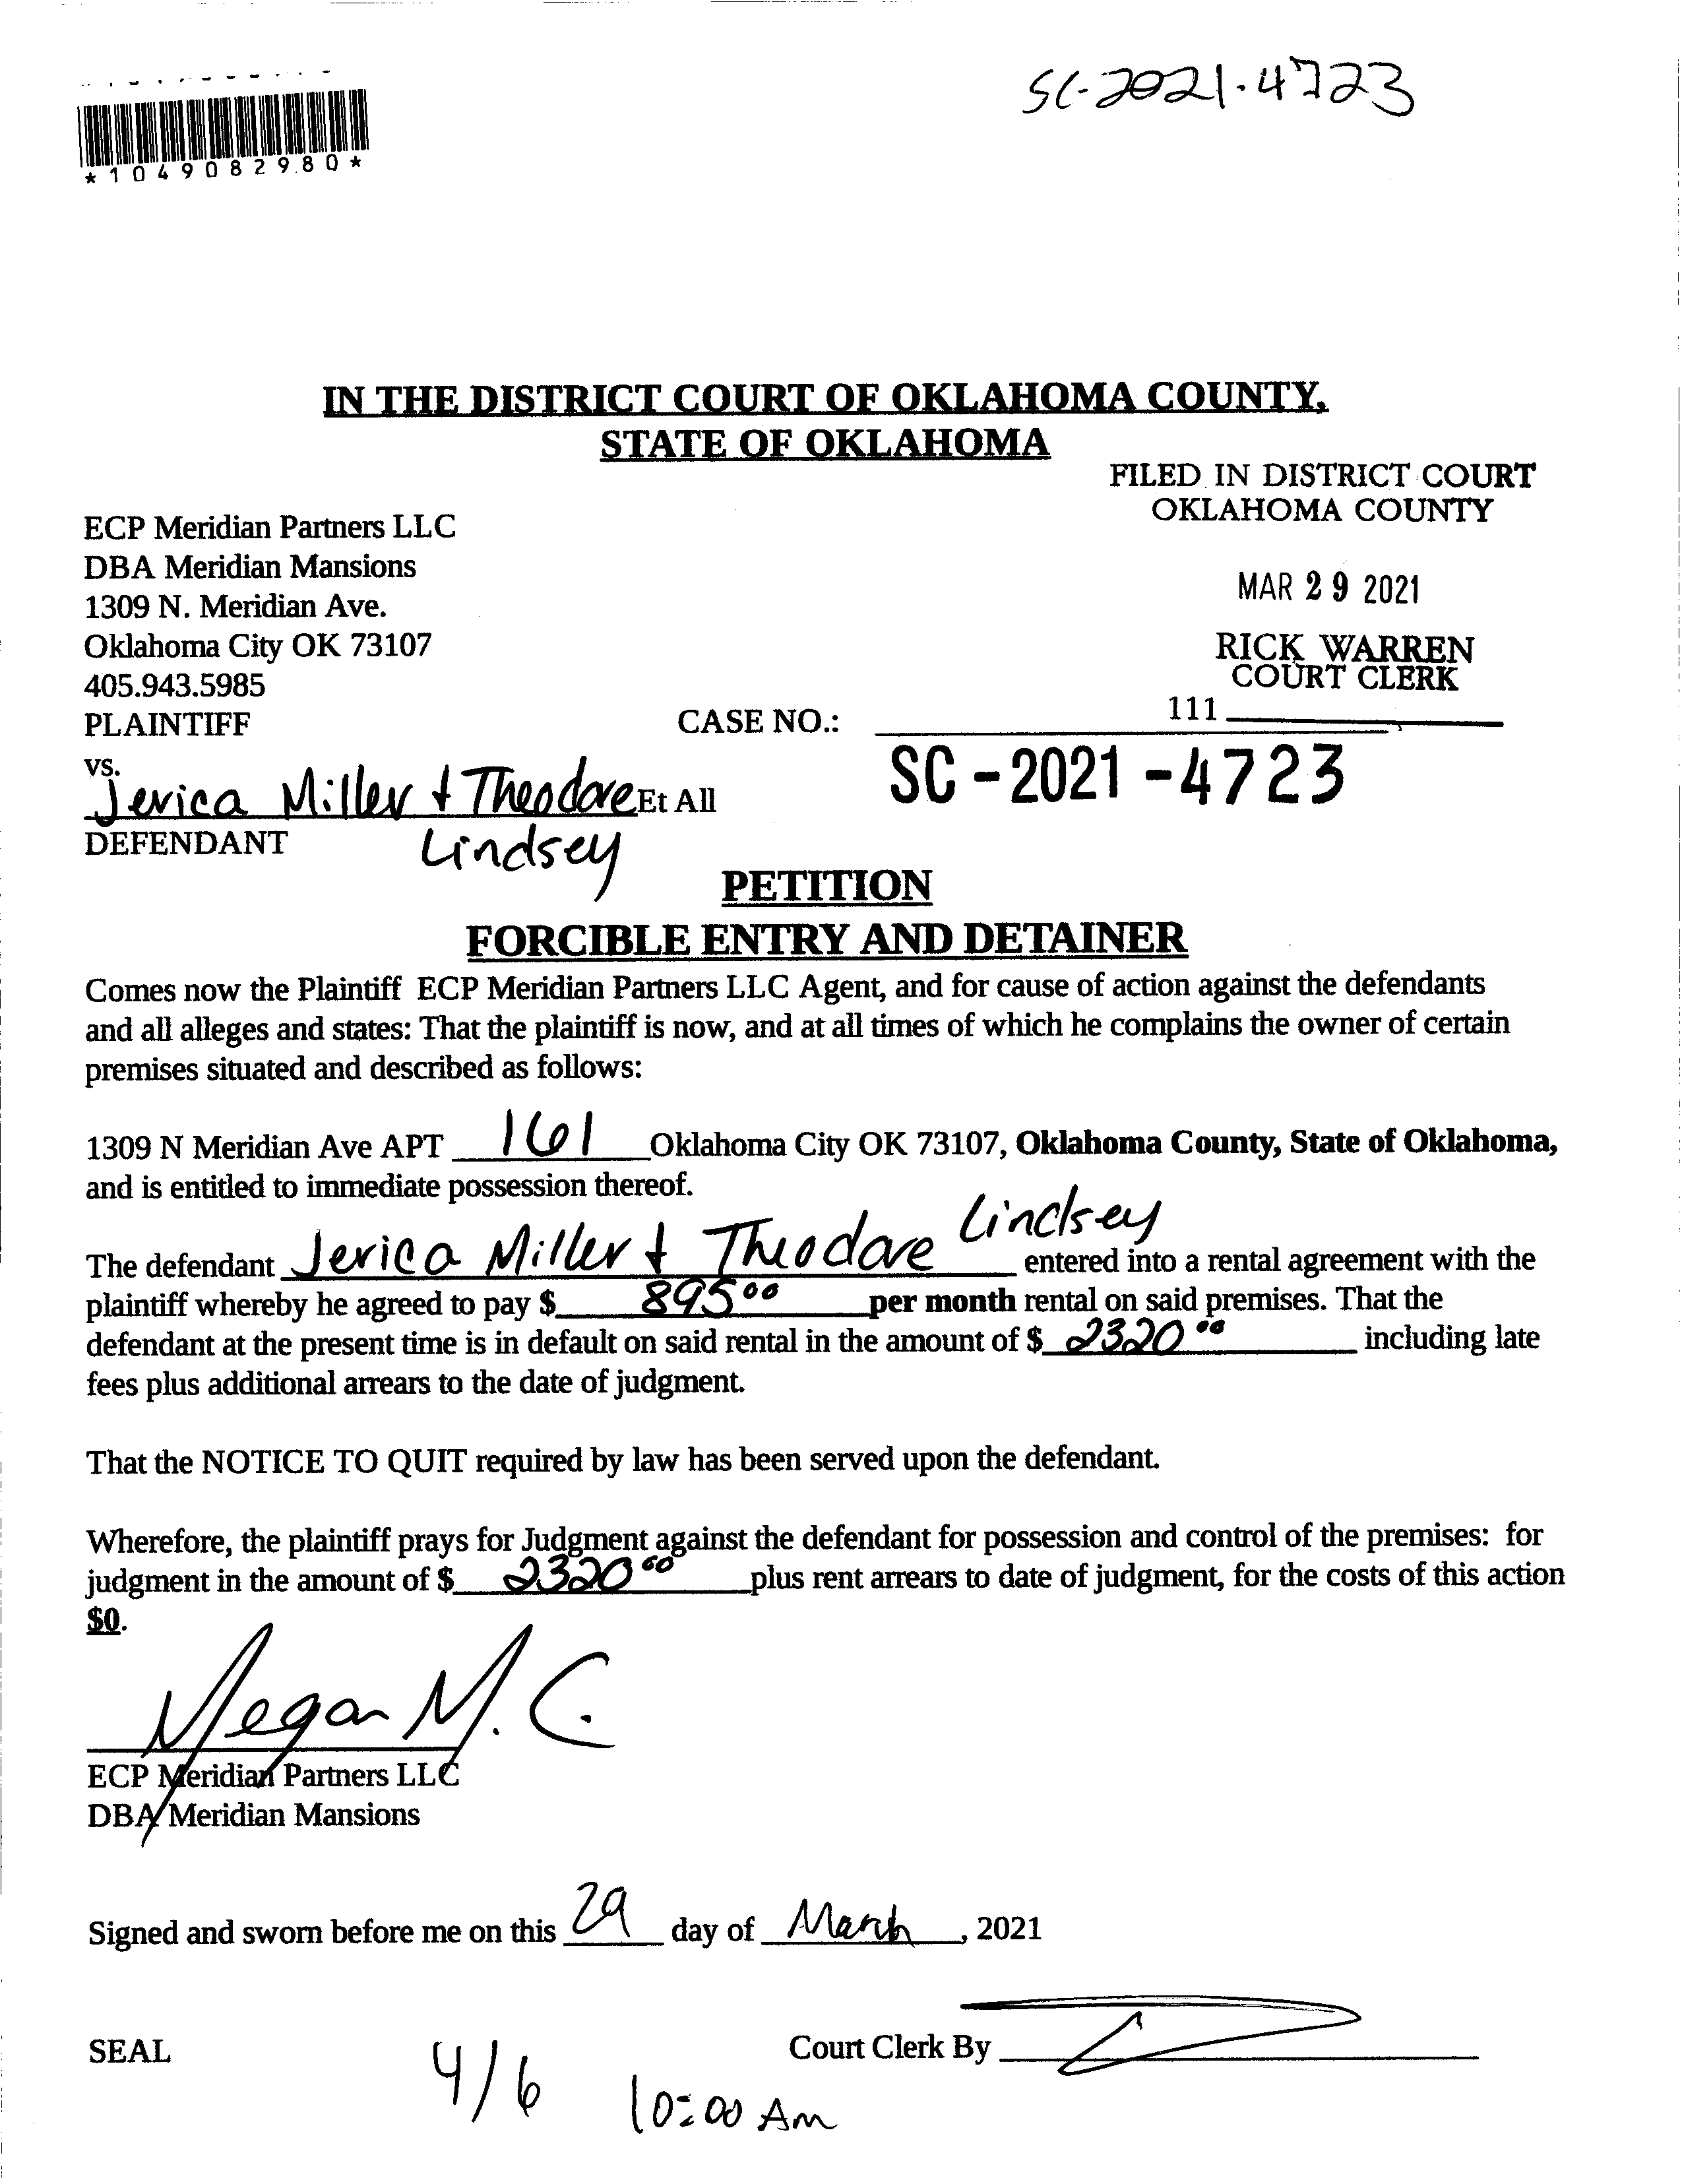 SC-2021-4723
*1049082980*
IN THE DISTRICT COURT OF OKLAHOMA COUNTY,
STATE OF OKLAHOMA
FILED IN DISTRICT COURT
OKLAHOMA COUNTY
MAR 29 2021
RICK WARREN
COURT CLERK
111
ECP Meridian Partners LLC
DBA Meridian Mansions
1309 N. Meridian Ave.
Oklahoma City OK 73107
405.943.5985
PLAINTIFF
CASE NO.:
SC-2021-4723
vs.
Jerica Miller + Theodore Et All
Lindsey
DEFENDANT
PETITION
FORCIBLE ENTRY AND DETAINER
Comes now the Plaintiff ECP Meridian Partners LLC Agent, and for cause of action against the defendants
and all alleges and states: That the plaintiff is now, and at all times of which he complains the owner of certain
premises situated and described as follows:
1309 N Meridian Ave APT 161 Oklahoma City OK 73107, Oklahoma County, State of Oklahoma,
and is entitled to immediate possession thereof.
The defendant Jerica Miller + Theodore Lindsey entered into a rental agreement with the
plaintiff whereby he agreed to pay $ 895 00 per month rental on said premises. That the
defendant at the present time is in default on said rental in the amount of $ 2320 00 including late
fees plus additional arrears to the date of judgment.
That the NOTICE TO QUIT required by law has been served upon the defendant.
Wherefore, the plaintiff prays for Judgment against the defendant for possession and control of the premises: for
judgment in the amount of $ 2320 00 plus rent arrears to date of judgment, for the costs of this action
$0.
Megan M. C.
ECP Meridian Partners LLC
DBA Meridian Mansions
Signed and sworn before me on this 29 day of March, 2021
SEAL
Court Clerk By
4/6 10:00 Am